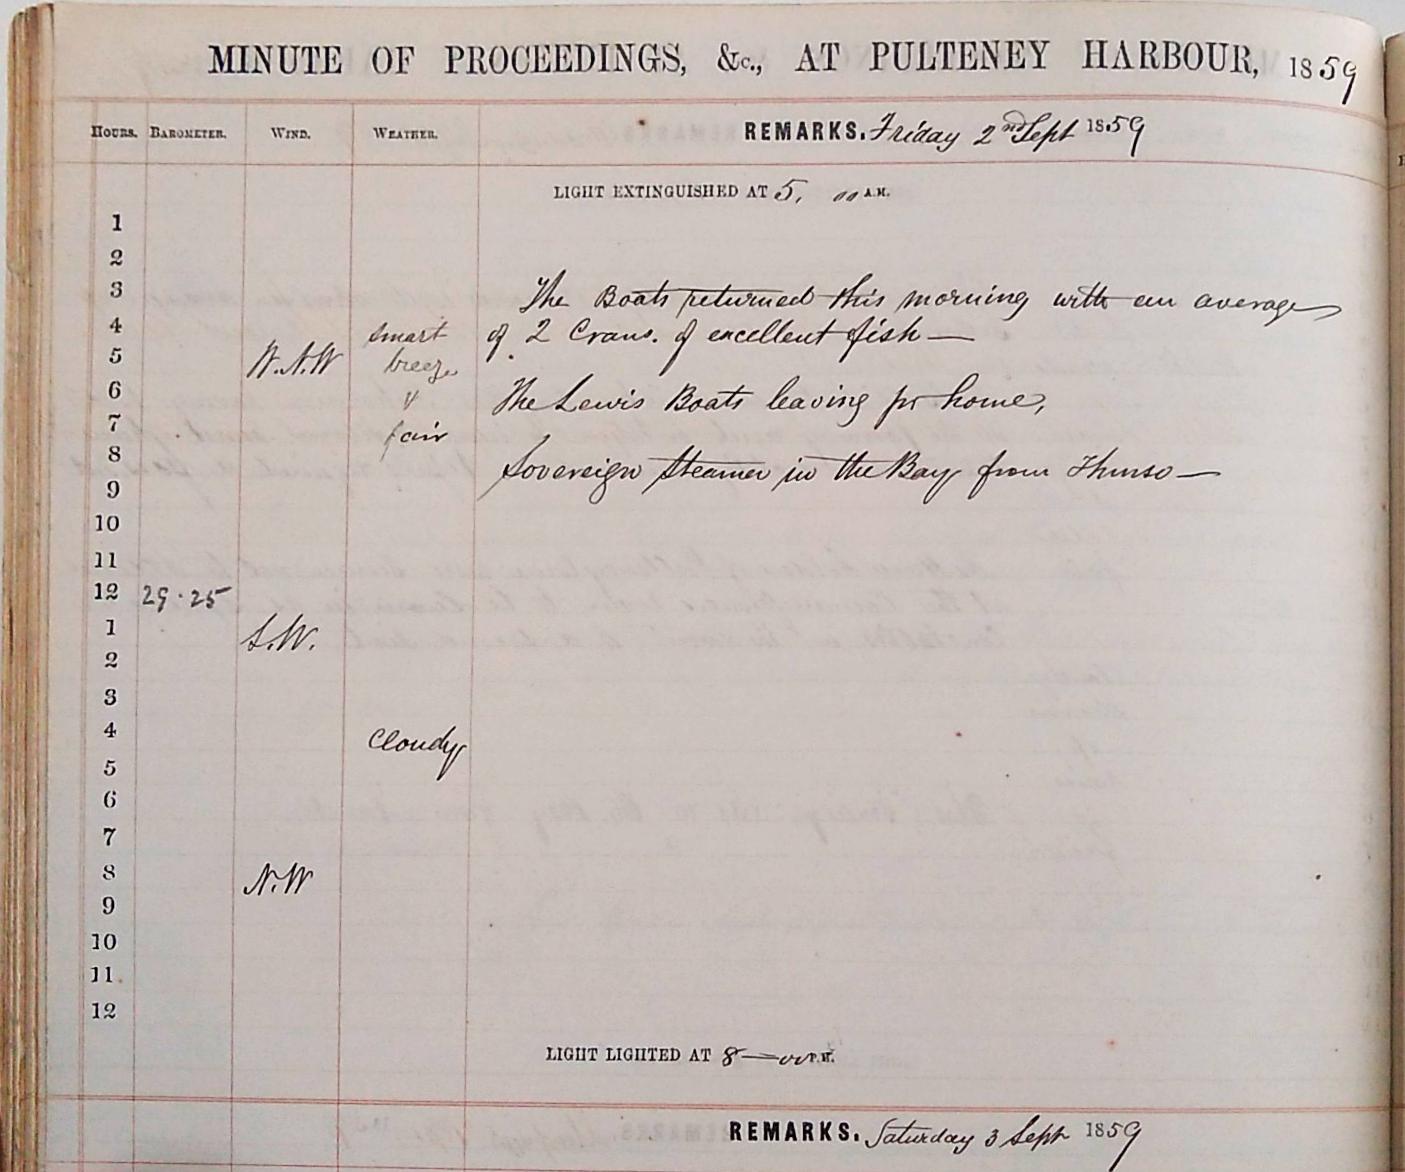 MINUTE OF PROCEEDINGS, &c., AT PULTENEY HARBOUR, 1859
HOURS. BAROMETER. WIND. WEATHER. REMARKS. Friday 2nd Sept 1859
LIGHT EXTINGUISHED AT 5, 00 A.M.
1
2
3 The Boats returned this morning with an average
4 smart of 2 Crans. of excellent fish —
5 W.N.W breeze
6 & The Lewis Boats leaving for home,
7 fair
8 Sovereign Steamer in the Bay from Thurso —
9
10
11
12 29.25
1 S.W.
2
3
4 Cloudy
5
6
7
8 N.W
9
10
11
12
LIGHT LIGHTED AT 8 — 00 P.M.
REMARKS. Saturday 3 Sept 1859